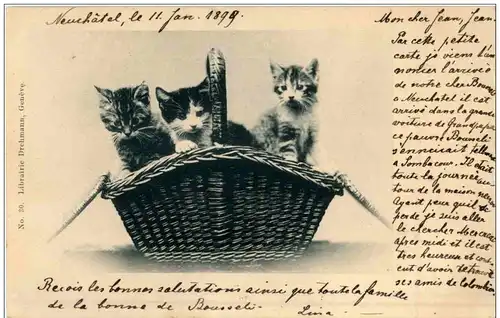 Neuchâtel, le 11. Jan. 1899
Mon cher Jean, Jean
Par cette petite
carte je viens t'an
noncer l'arrivée
de notre cher Bousseli
a Neuchâtel il est
arrivé dans la grande
voiture de Grandpapa
ce pauvre Bousseli
s'ennuiait
a Sombacour. Il était
toute la journée
tour de la maison
Ayant peur qu'il se
perde je suis aller
le chercher Mercredi
après midi et il est
très heureux et con
tent d'avoir retrouvé
ses amis de Colombier
Recois les bonnes salutations ainsi que toute la famille
de la bonne de Bousseli.
Lina.
No. 30. Librairie Drehmann, Genève